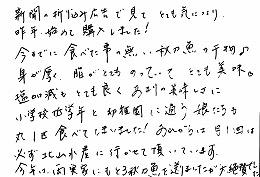 新聞の折り込み広告で見て とても気になり、
昨年、始めて購入しました！
今までに食べた事の無い、秋刀魚の干物♪
身が厚く、脂がとても のっていて とても美味。
塩加減も とても良く あまりの美味しさに
小学校低学年と幼稚園に通う娘たちも
丸1匹食べてしまいました！あれからは 月1回は
必ず北山水産に行かせて頂いています。
今年は、両実家にもとろ秋刀魚を送りましたが大絶賛でした